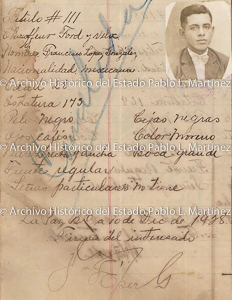 Título # 111
Chauffeur Ford y
Francisco López González
Nacionalidad Mexicana
© Archivo Histórico del Estado Pablo L. Martínez
Estatura 173
Pelo Negro Cejas negras
Ojos cafés Color Moreno
ancha Boca grande
© Archivo Histórico del Estado Pablo L. Martínez
Frente regular
Señas particulares no tiene
© Archivo Histórico del Estado Pablo L. Martínez
La Paz a 10 de Dic de 1928
Firma del interesado